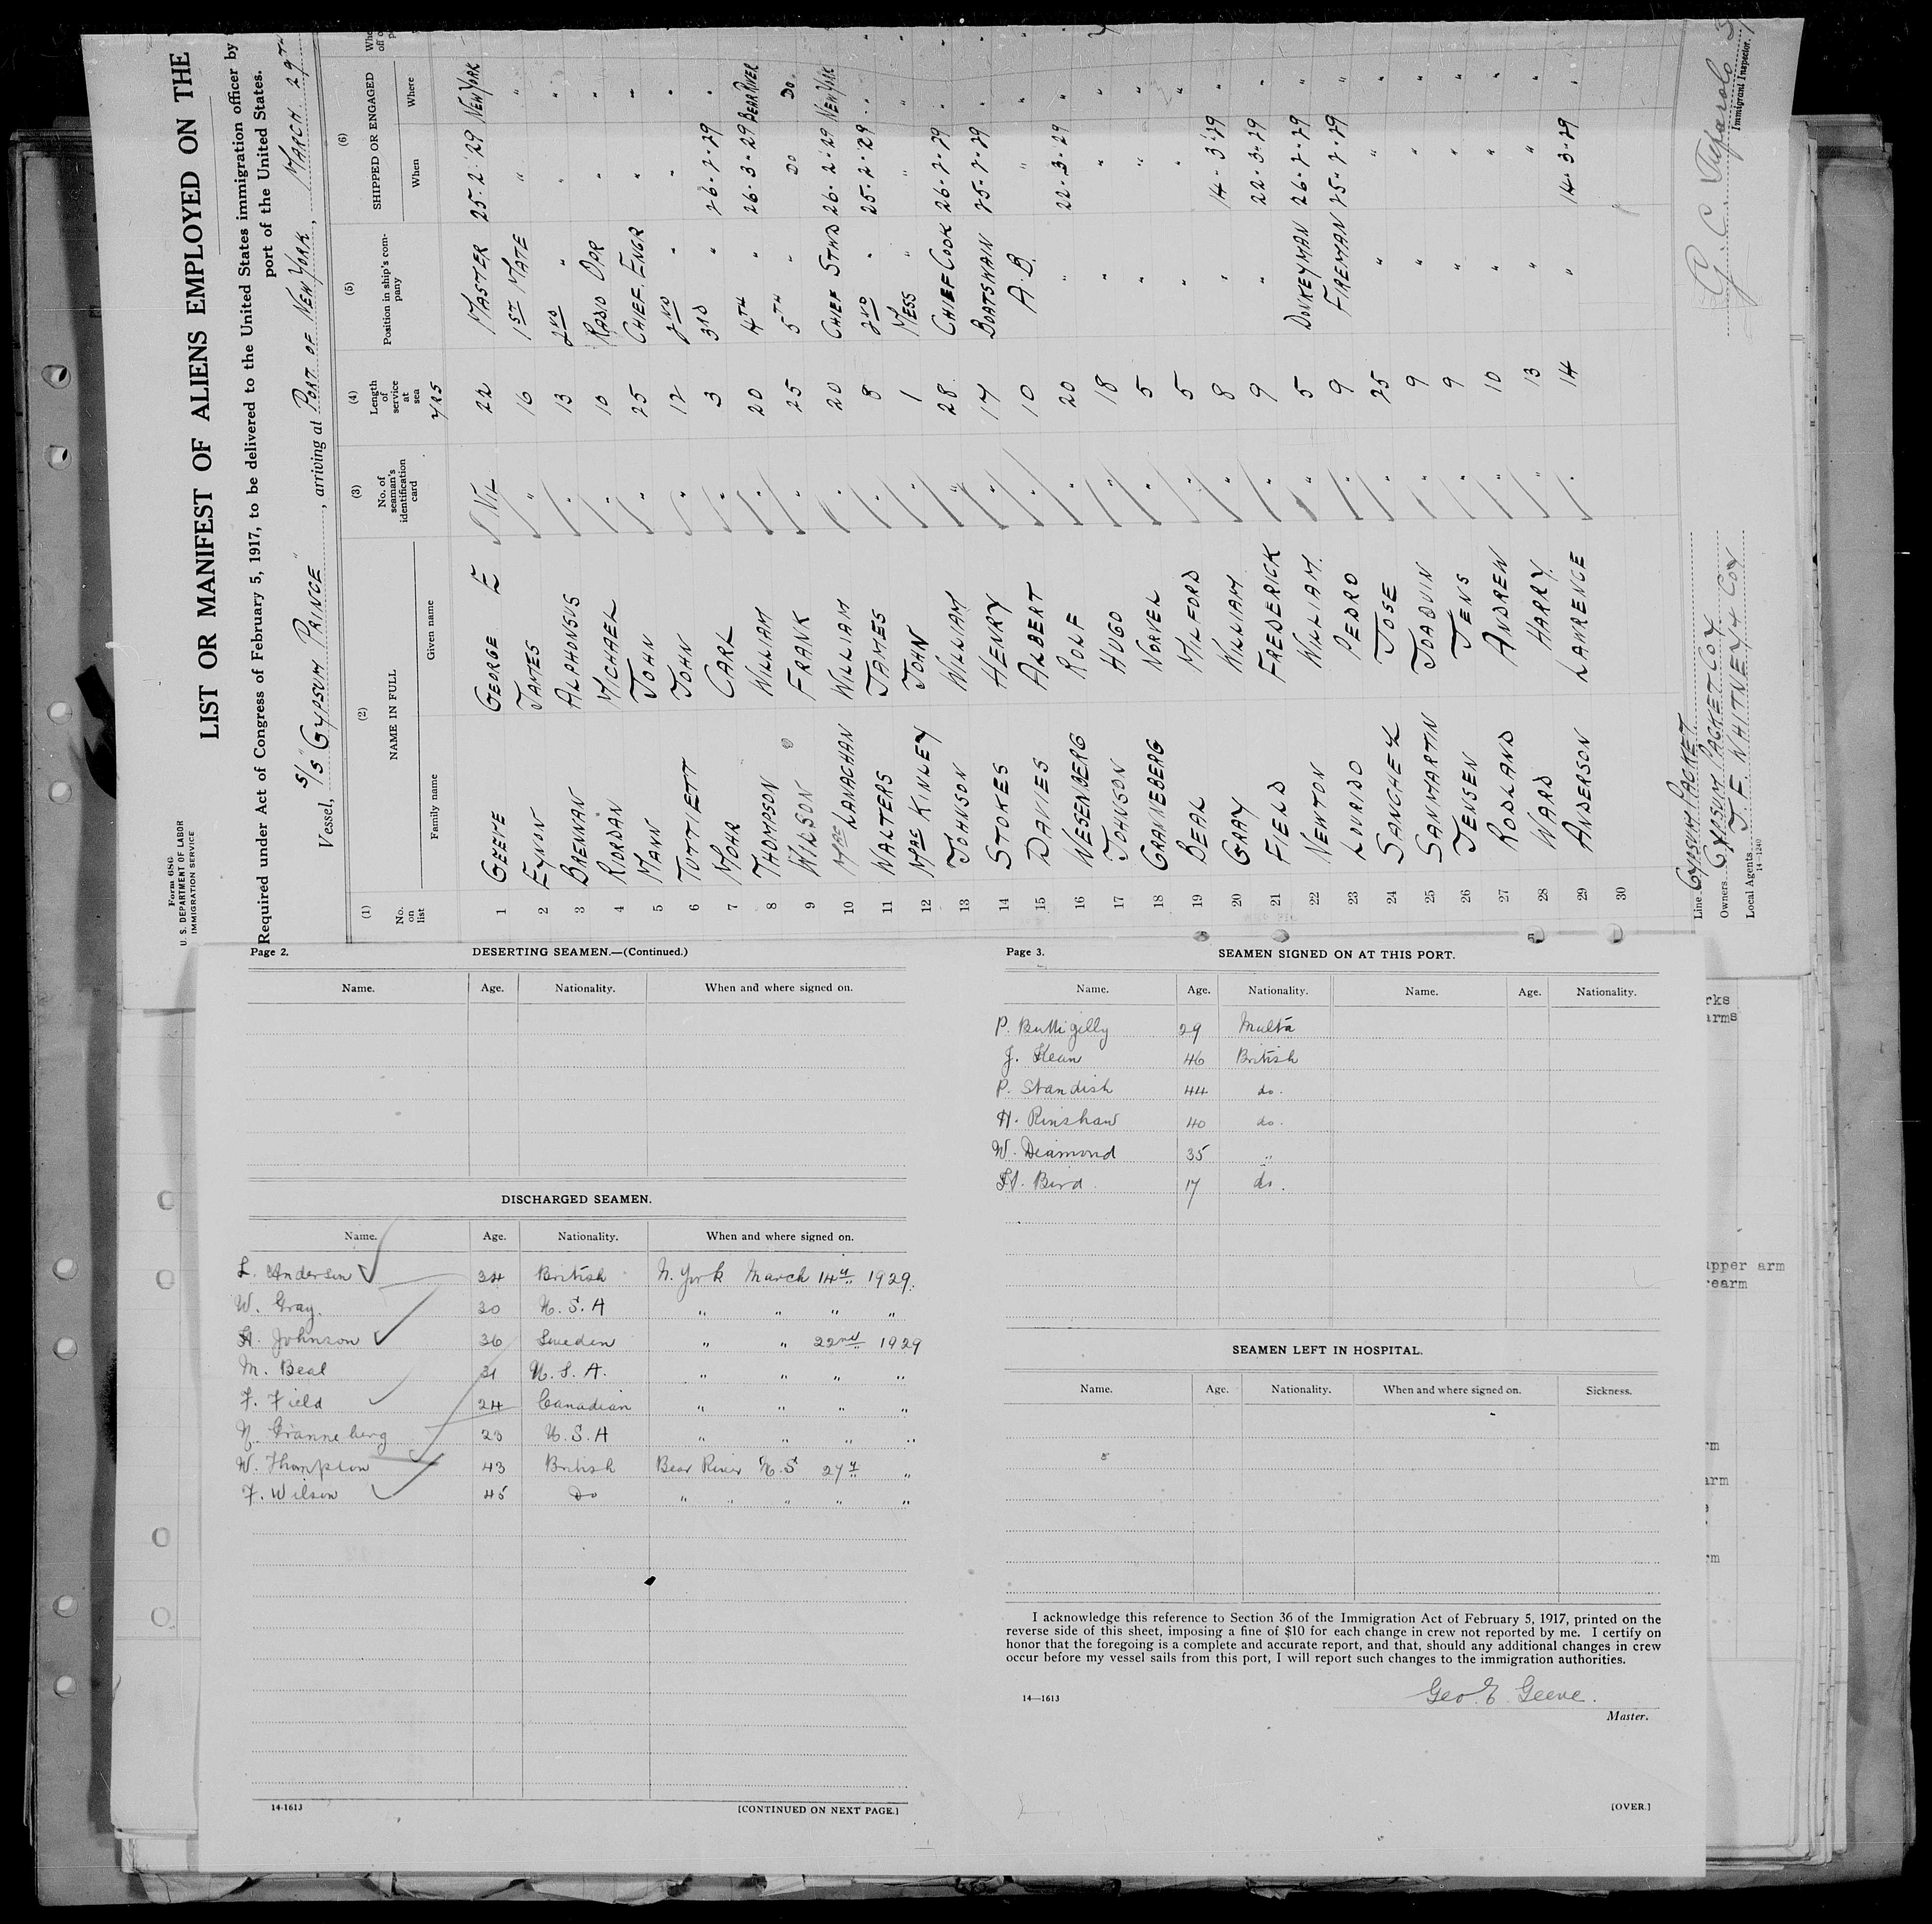 Form 689
U. S. DEPARTMENT OF LABOR
IMMIGRATION SERVICE
LIST OR MANIFEST OF ALIENS EMPLOYED ON THE
Required under Act of Congress of February 5, 1917, to be delivered to the United States immigration officer by
port of the United States.
Vessel, S/S "GYPSUM PRINCE", arriving at PORT OF NEW YORK, MARCH 29TH
(1) (2) (3) (4) (5) (6)
No. on list NAME IN FULL No. of seaman's identification card Length of service at sea Position in ship's company SHIPPED OR ENGAGED
Family name Given name YRS When Where
1 GEEVE GEORGE E NIL 22 MASTER 25-2-29 NEW YORK
2 EYNON JAMES " 16 1ST MATE " "
3 BRENNAN ALPHONSUS " 13 2ND " " "
4 RIORDAN MICHAEL " 10 RADIO OPR " "
5 MANN JOHN " 25 CHIEF ENGR " "
6 TUTTIETT JOHN " 12 2ND " " "
7 MOHR CARL " 3 3RD " 26-2-29 "
8 THOMPSON WILLIAM " 20 4TH " 26-3-29 BEAR RIVER
9 WILSON FRANK " 25 5TH " DO DO
10 WILLIAM " 20 CHIEF STWD 26-2-29 NEW YORK
11 WALTERS JAMES " 8 2ND " 25-2-29 "
12 KINLEY JOHN " 1 MESS " " "
13 JOHNSON WILLIAM " 28 CHIEF COOK 26-2-29 "
14 STOKES HENRY " 17 BOATSWAIN 25-2-29 "
15 DAVIES ALBERT " 10 A.B. " "
16 WESENBERG ROLF " 20 " 22-3-29 "
17 JOHNSON HUGO " 18 " " "
18 GRANEBERG NORVEL " 5 " " "
19 BEAL MILFORD " 5 " " "
20 GRAY WILLIAM " 8 " 14-3-29 "
21 FIELD FREDERICK " 9 " 22-3-29 "
22 NEWTON WILLIAM " 5 DONKEYMAN 26-2-29 "
23 LOURIDO PEDRO " 9 FIREMAN 25-2-29 "
24 SANCHEZ JOSE " 25 " " "
25 SANMARTIN JOAQUIN " 9 " " "
26 JENSEN JENS " 9 " " "
27 RODLAND ANDREW " 10 " " "
28 WARD HARRY " 13 " " "
29 ANDERSON LAWRENCE " 14 " 14-3-29 "
30
Line GYPSUM PACKET
Owners GYPSUM PACKET COY
Local Agents J. F. WHITNEY & COY
14-1240
Immigrant Inspector.
Page 2. DESERTING SEAMEN.—(Continued.)
Name. Age. Nationality. When and where signed on.
DISCHARGED SEAMEN.
Name. Age. Nationality. When and where signed on.
L. Anderson 34 British N. York March 14th 1929.
W. Gray. 30 U.S.A " " " "
H. Johnson 36 Sweden " " 22nd 1929
M. Beal 31 U.S.A. " " " "
F. Field 24 Canadian " " " "
N. Granneberg 23 U.S.A " " " "
W. Thompson 43 British Bear River N.S 27th "
F. Wilson 45 Do " " " " "
14-1613 [CONTINUED ON NEXT PAGE.]
Page 3. SEAMEN SIGNED ON AT THIS PORT.
Name. Age. Nationality. Name. Age. Nationality.
P. Buttigilly 29 Malta
J. Kean 46 British
P. Standish 44 do.
H. Rinshaw 40 do.
W. Diamond 35 "
H. Bird. 17 do.
SEAMEN LEFT IN HOSPITAL.
Name. Age. Nationality. When and where signed on. Sickness.
I acknowledge this reference to Section 36 of the Immigration Act of February 5, 1917, printed on the
reverse side of this sheet, imposing a fine of $10 for each change in crew not reported by me. I certify on
honor that the foregoing is a complete and accurate report, and that, should any additional changes in crew
occur before my vessel sails from this port, I will report such changes to the immigration authorities.
14—1613
Geo. E. Geeve.
Master.
[OVER.]
rks
arms
upper arm
rearm
rm
arm
rm